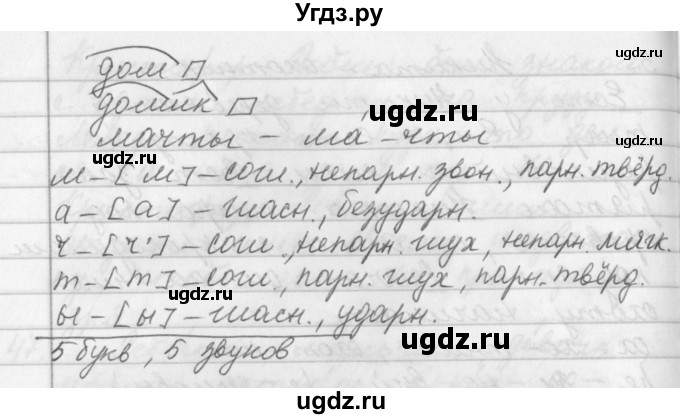 Угдз.ру
дом
домик
мачты – ма-чты
м – [м] – согл., непарн. звон., парн. твёрд.
а – [а] – гласн., безударн.
ч – [ч'] – согл., непарн. глух, непарн. мягк.
т – [т] – согл., парн. глух, парн. твёрд.
ы – [ы] – гласн., ударн.
5 букв, 5 звуков
ugdz.ru
ugdz.ru
ugdz.ru
ugdz.ru
ugdz.ru
ugdz.ru
ugdz.ru
ugdz.ru
ugdz.ru